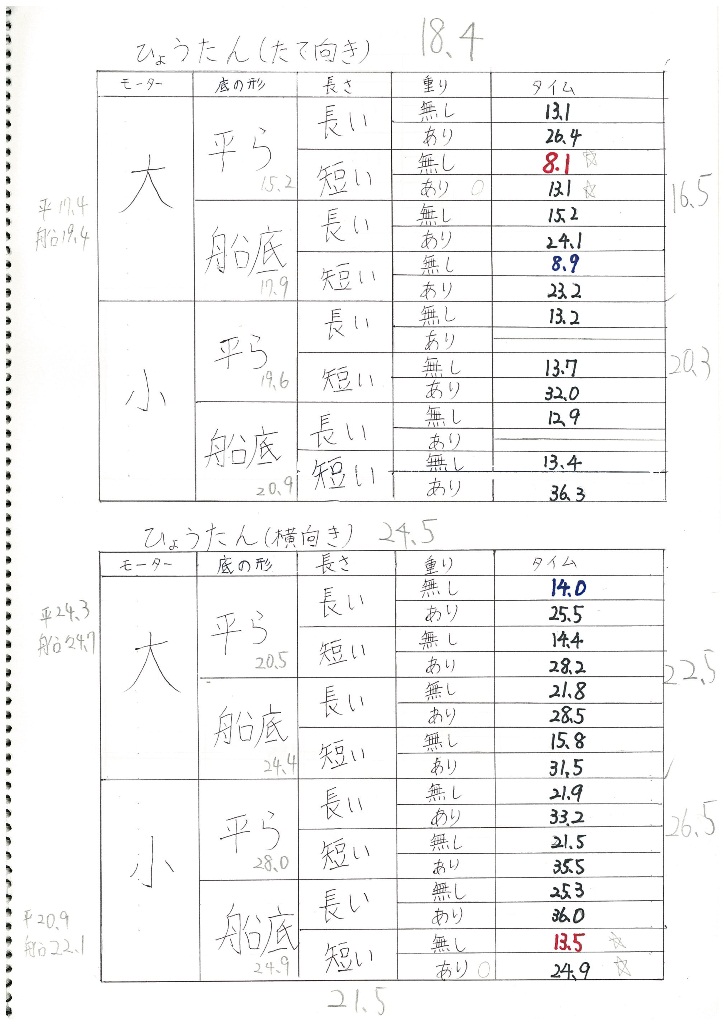 ひょうたん(たて向き) 18.4
モーター 底の形 長さ 重り タイム
大 平ら 15.2 長い 無し 13.1
あり 26.4
短い 無し 8.1 ☆
あり ○ 13.1 ☆
16.5
平17.4
船谷19.4
船底 17.9 長い 無し 15.2
あり 24.1
短い 無し 8.9
あり 23.2
小 平ら 19.6 長い 無し 13.2
あり
短い 無し 13.7
あり 32.0
20.3
船底 20.9 長い 無し 12.9
あり
短い 無し 13.4
あり 36.3
ひょうたん(横向き) 24.5
モーター 底の形 長さ 重り タイム
大 平ら 20.5 長い 無し 14.0
あり 25.5
平24.3
船谷24.7
短い 無し 14.4
あり 28.2
22.5
船底 24.4 長い 無し 21.8
あり 28.5
短い 無し 15.8
あり 31.5
小 平ら 28.0 長い 無し 21.9
あり 33.2
26.5
短い 無し 21.5
あり 35.5
船底 24.9 長い 無し 25.3
あり 36.0
平20.9
船谷22.1
短い 無し 13.5 ☆
あり ○ 24.9 ☆
21.5